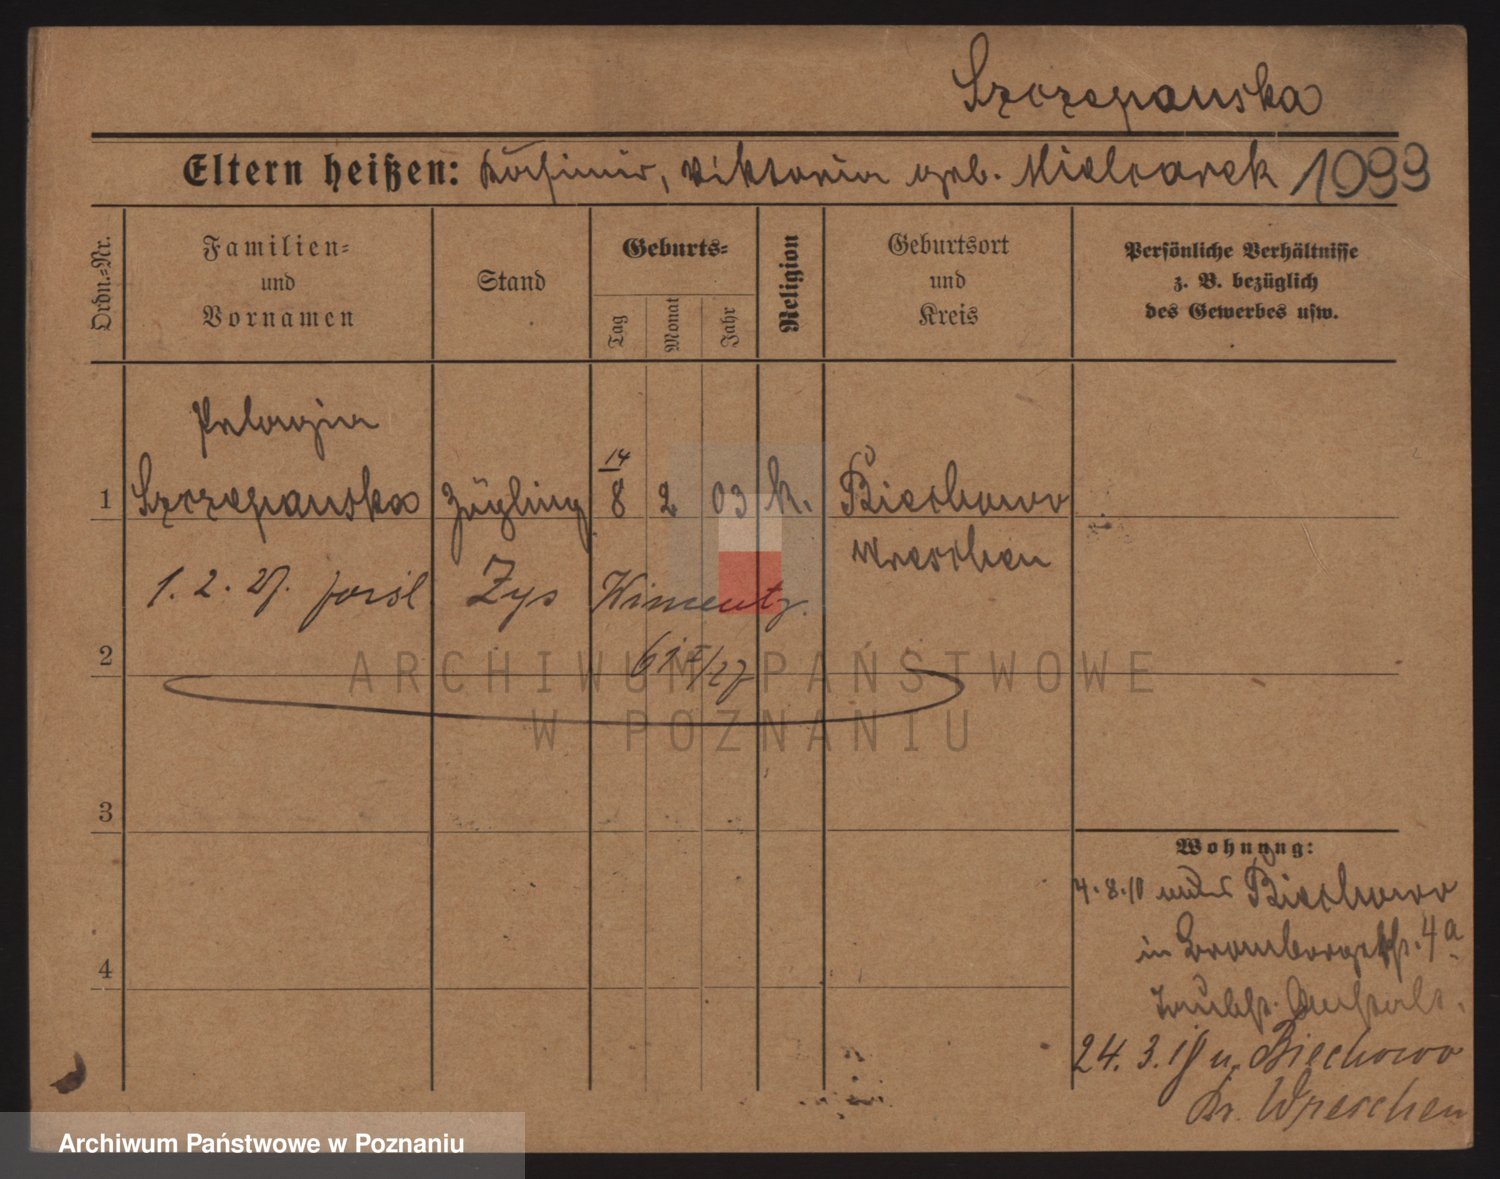 Szczepanska
Eltern heißen: Kasimir, Viktoria geb. Mielcarek 1099
Ordn.=Nr.
Familien=
und
Vornamen
Stand
Geburts=
Tag
Monat
Jahr
Religion
Geburtsort
und
Kreis
Persönliche Verhältnisse
z. B. bezüglich
des Gewerbes usw.
Pelagia
14
1 Szczepanska Zögling 8 2 03 k. Biechowo
Wreschen
1. 2. 27. Zys
2
3
4
Wohnung:
4.8.10 Biechowo
in Brombergerstr. 4a
Taubst. Anstalt.
24. 3. 19 n. Biechowo
Kr. Wreschen
ARCHIWUM PAŃSTWOWE
W POZNANIU
Archiwum Państwowe w Poznaniu